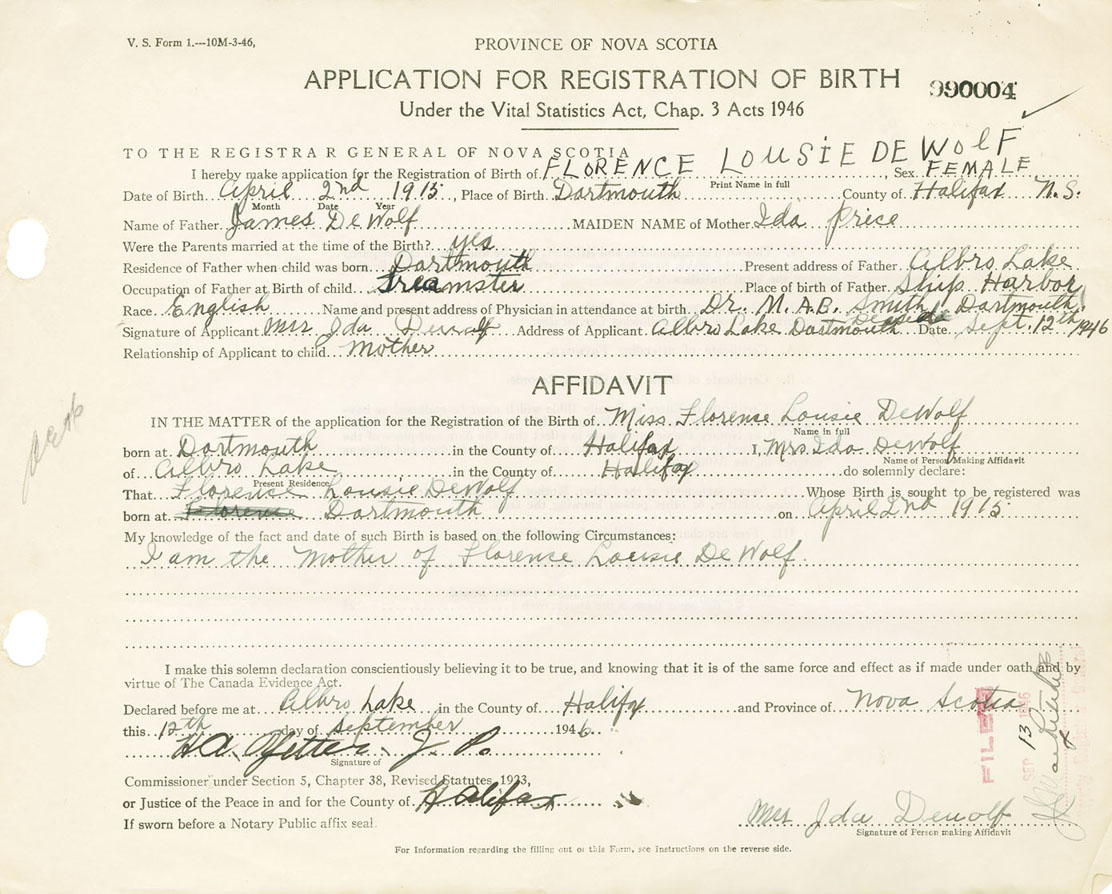 V. S. Form 1.---10M-3-46,
PROVINCE OF NOVA SCOTIA
APPLICATION FOR REGISTRATION OF BIRTH
990004
Under the Vital Statistics Act, Chap. 3 Acts 1946
TO THE REGISTRAR GENERAL OF NOVA SCOTIA
I hereby make application for the Registration of Birth of FLORENCE LOUSIE DE WOLF, Sex FEMALE
Print Name in full
Date of Birth April 2nd 1915, Place of Birth Dartmouth County of Halifax N.S.
Month Date Year
Name of Father James De Wolf MAIDEN NAME of Mother Ida Price
Were the Parents married at the time of the Birth? yes
Residence of Father when child was born Dartmouth Present address of Father Albro Lake
Occupation of Father at Birth of child treamster Place of birth of Father Ship Harbor
Race English Name and present address of Physician in attendance at birth Dr. M. A. B. Smith Dartmouth
Signature of Applicant Mrs Ida Dewolf Address of Applicant Albro Lake Dartmouth Date Sept. 12th 1946
Relationship of Applicant to child Mother
AFFIDAVIT
IN THE MATTER of the application for the Registration of the Birth of Miss Florence Lousie DeWolf
Name in full
born at Dartmouth in the County of Halifax I, Mrs Ida DeWolf
Name of Person Making Affidavit
of Albro Lake in the County of Halifax do solemnly declare:
Present Residence
That Florence Lousie DeWolf Whose Birth is sought to be registered was
born at Florence Dartmouth on April 2nd 1915
My knowledge of the fact and date of such Birth is based on the following Circumstances:
I am the Mother of Florence Lousie De Wolf.
I make this solemn declaration conscientiously believing it to be true, and knowing that it is of the same force and effect as if made under oath and by
virtue of The Canada Evidence Act.
Declared before me at Albro Lake in the County of Halifax and Province of Nova Scotia
this 12th day of September 1946
J. P.
Signature of
Commissioner under Section 5, Chapter 38, Revised Statutes, 1923,
or Justice of the Peace in and for the County of Halifax
If sworn before a Notary Public affix seal.
Mrs Ida Dewolf
Signature of Person making Affidavit
For Information regarding the filling out of this Form, see instructions on the reverse side.
FILED
SEP 13 1946